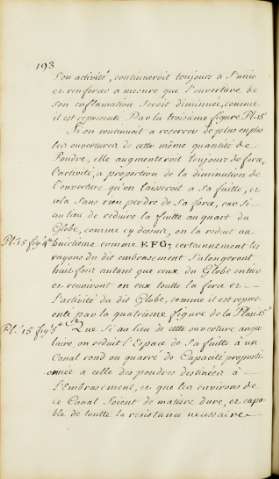 193
Son activité, continueroit toujours à s'unir
et renforcer a mesure que l'ouverture de
son enflamation Seroit diminuée, comme
il est representé Par la troisieme figure Pl. 15
Si on continuoit a resserrer de plus en plus
les ouvertures de cette même quantité de
Poudre, elle augmenteroit toujours de force,
l'activité, a proportion de la diminution de
l'ouverture qu'on laisseroit a Sa fuitte, et
cela Sans rien perdre de Sa force, car Si
au lieu de reduire la fuitte au quart du
Globe, comme cy dessus, on la reduit au
Pl. 15 fig 4e huitieme comme EFG, certainnement les
rayons du dit embrasement S'alongeront
huit fois autant que ceux du Globe entier
et reuniront en eux toutte la force et
l'activité du dit Globe, comme il est repre-
senté par la quatrieme figure de la Plan. 15e
Pl. 15 fig 5e Que Si au lieu de cette ouverture angu-
laire, on reduit l'Espace de Sa fuitte à un
Canal rond ou quarré de Capacité proporti-
onnée a celle des poudres destinées à
l'Embrasement, et que les environs de
ce Canal Soient de matiere dure, et capa-
ble de toutte la resistance necessaire